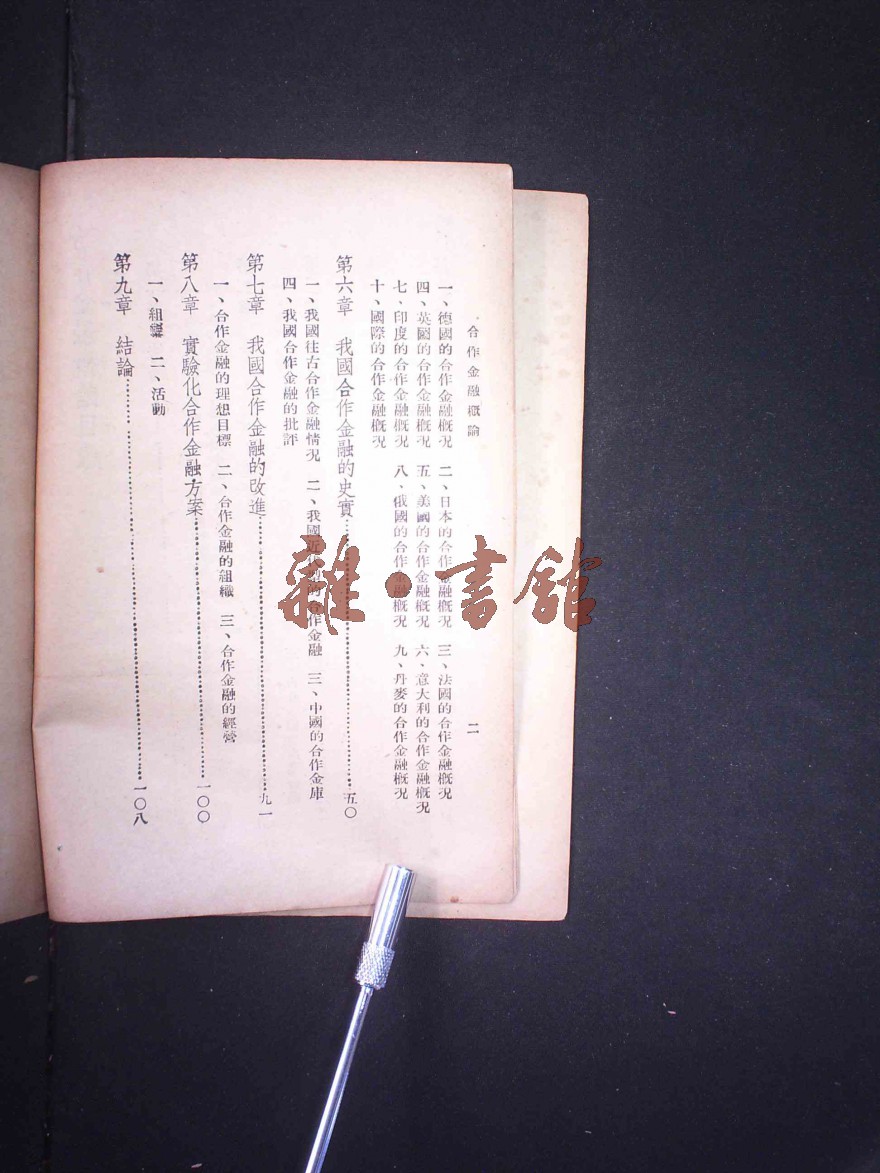 合作金融概論
二
一、德國的合作金融概況　二、日本的合作金融概況　三、法國的合作金融概況
四、英國的合作金融概況　五、美國的合作金融概況　六、意大利的合作金融概況
七、印度的合作金融概況　八、俄國的合作金融概況　九、丹麥的合作金融概況
十、國際的合作金融概況
第六章　我國合作金融的史實……五〇
一、我國往古合作金融情況　二、我國近代型的合作金融　三、中國的合作金庫
四、我國合作金融的批評
第七章　我國合作金融的改進……九一
一、合作金融的理想目標　二、合作金融的組織　三、合作金融的經營
第八章　實驗化合作金融方案……一〇〇
一、組織　二、活動
第九章　結論……一〇八
雜·書館